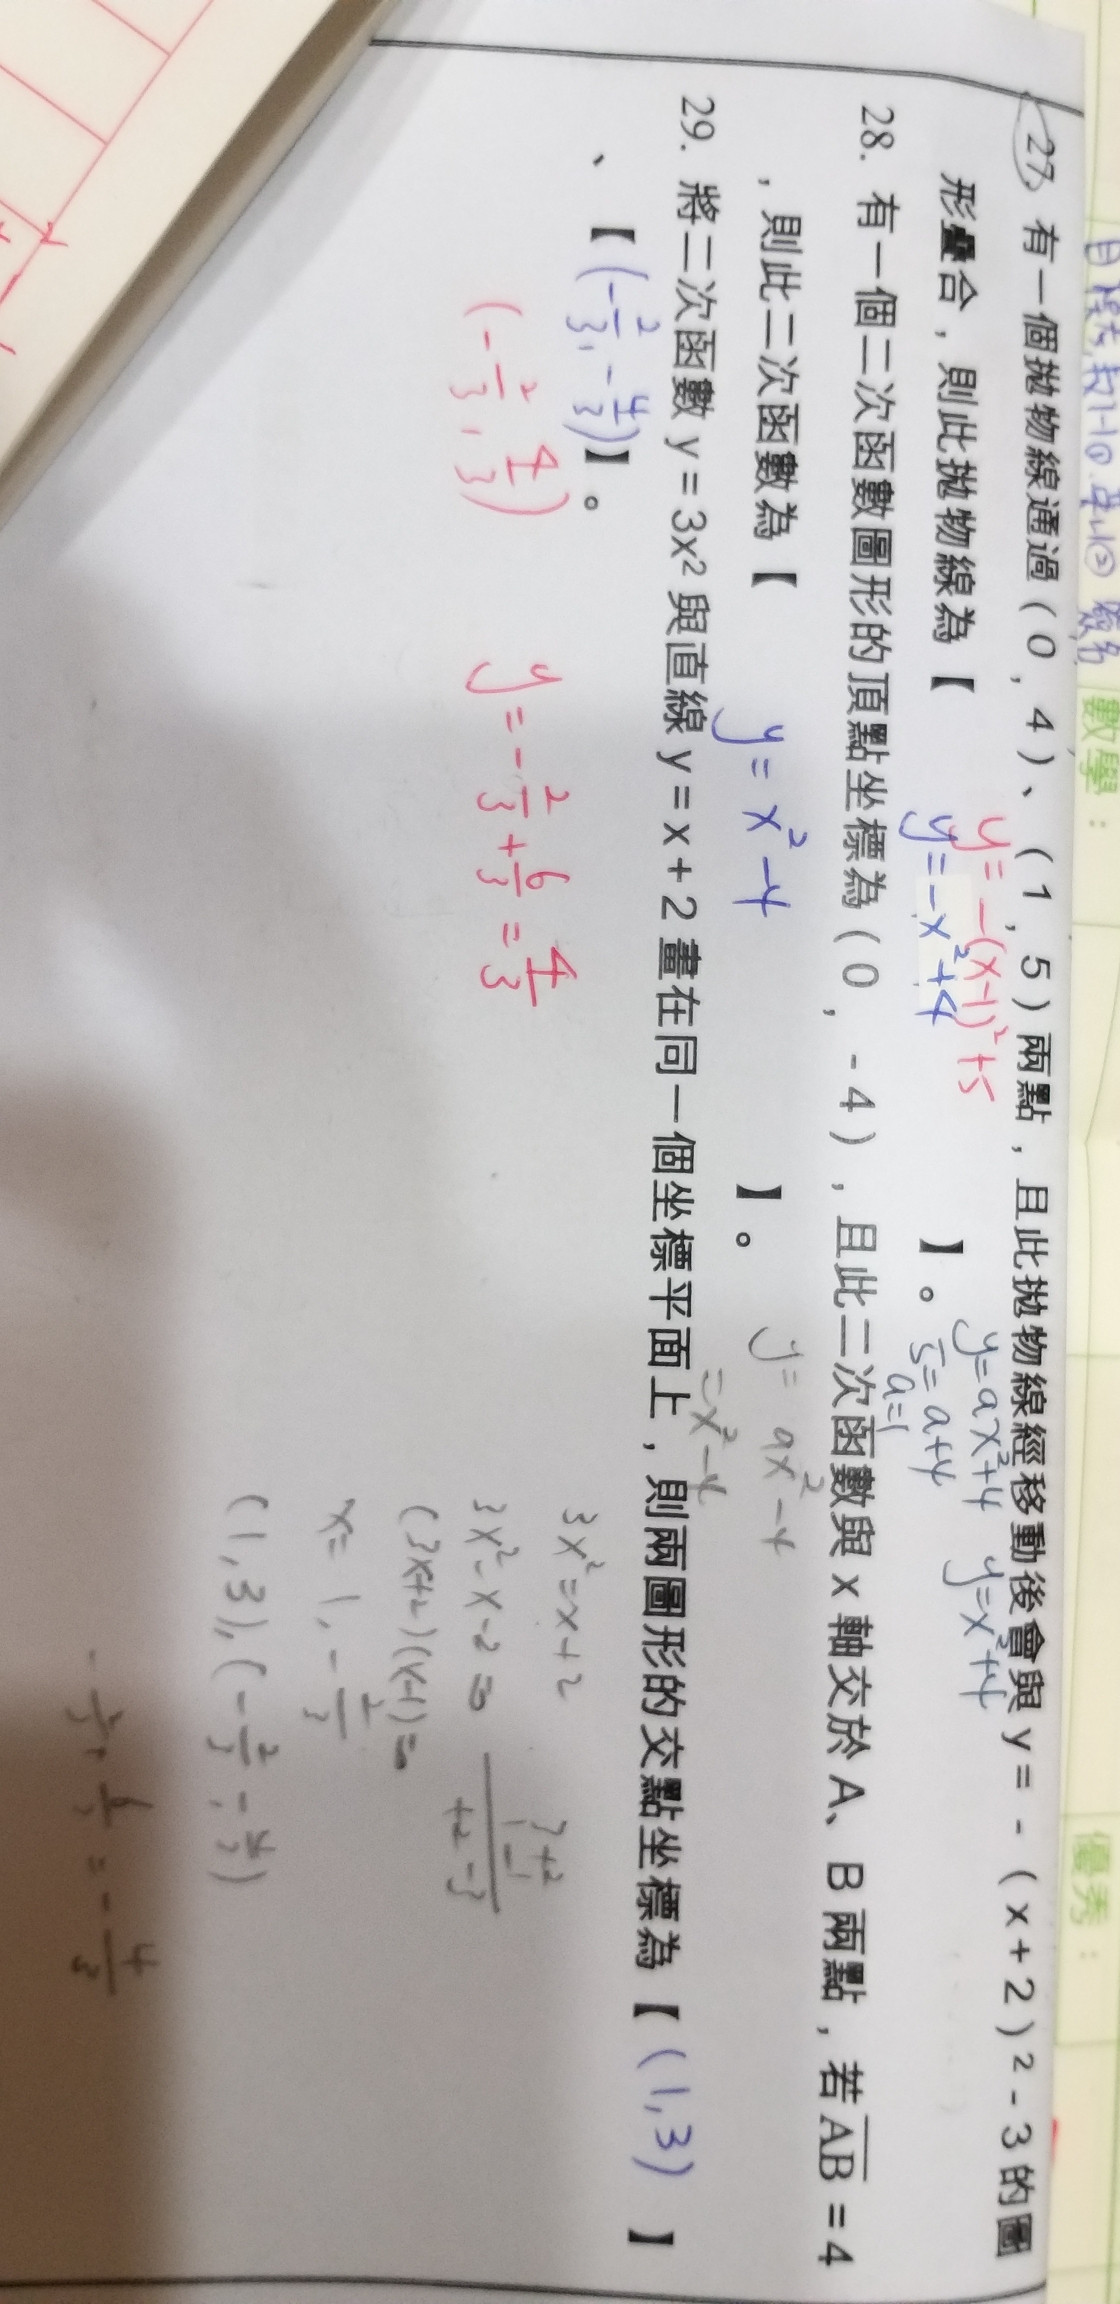 數學：
優秀：
27. 有一個拋物線通過（0，4）、（1，5）兩點，且此拋物線經移動後會與 y = -（x+2）² - 3 的圖
形疊合，則此拋物線為【 y=-(x-1)²+5 】。
y=-x²+4
y=ax²+4
5=a+4
a=1
y=x²+4
28. 有一個二次函數圖形的頂點坐標為（0，-4），且此二次函數與 x 軸交於 A、B 兩點，若 AB = 4
，則此二次函數為【 y=x²-4 】。
y=ax²-4
=x²-4
29. 將二次函數 y = 3x² 與直線 y = x + 2 畫在同一個坐標平面上，則兩圖形的交點坐標為【 (1,3) 】
、【 (-2/3, -4/3) 】。
(-2/3, 4/3)
y=-2/3+6/3=4/3
3x²=x+2
3x²-x-2=0
(3x+2)(x-1)=0
x=1,-2/3
(1,3),(-2/3,-4/3)
3+2
1-1
+2-3